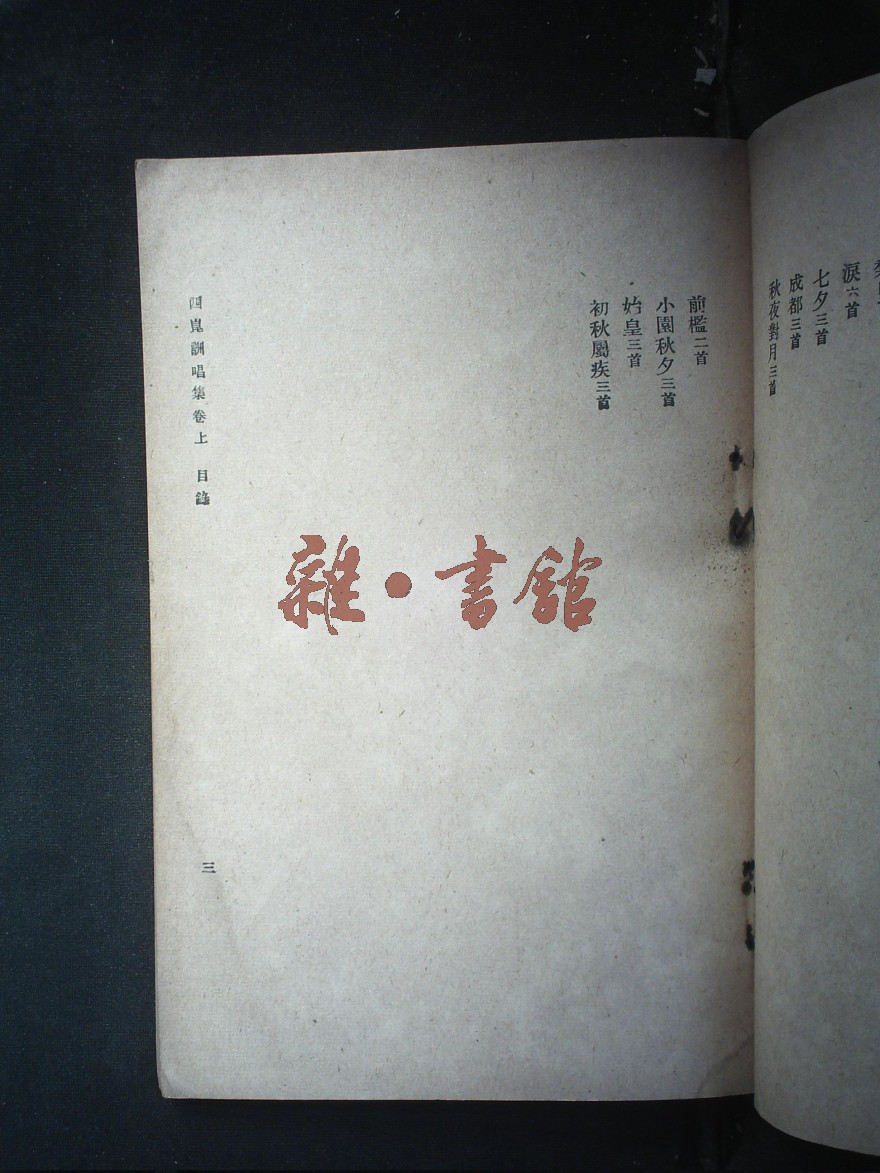 淚六首
七夕三首
成都三首
秋夜對月三首
前檻二首
小園秋夕三首
始皇三首
初秋屬疾三首
西崑詶唱集卷上 目錄
三
雜·書館